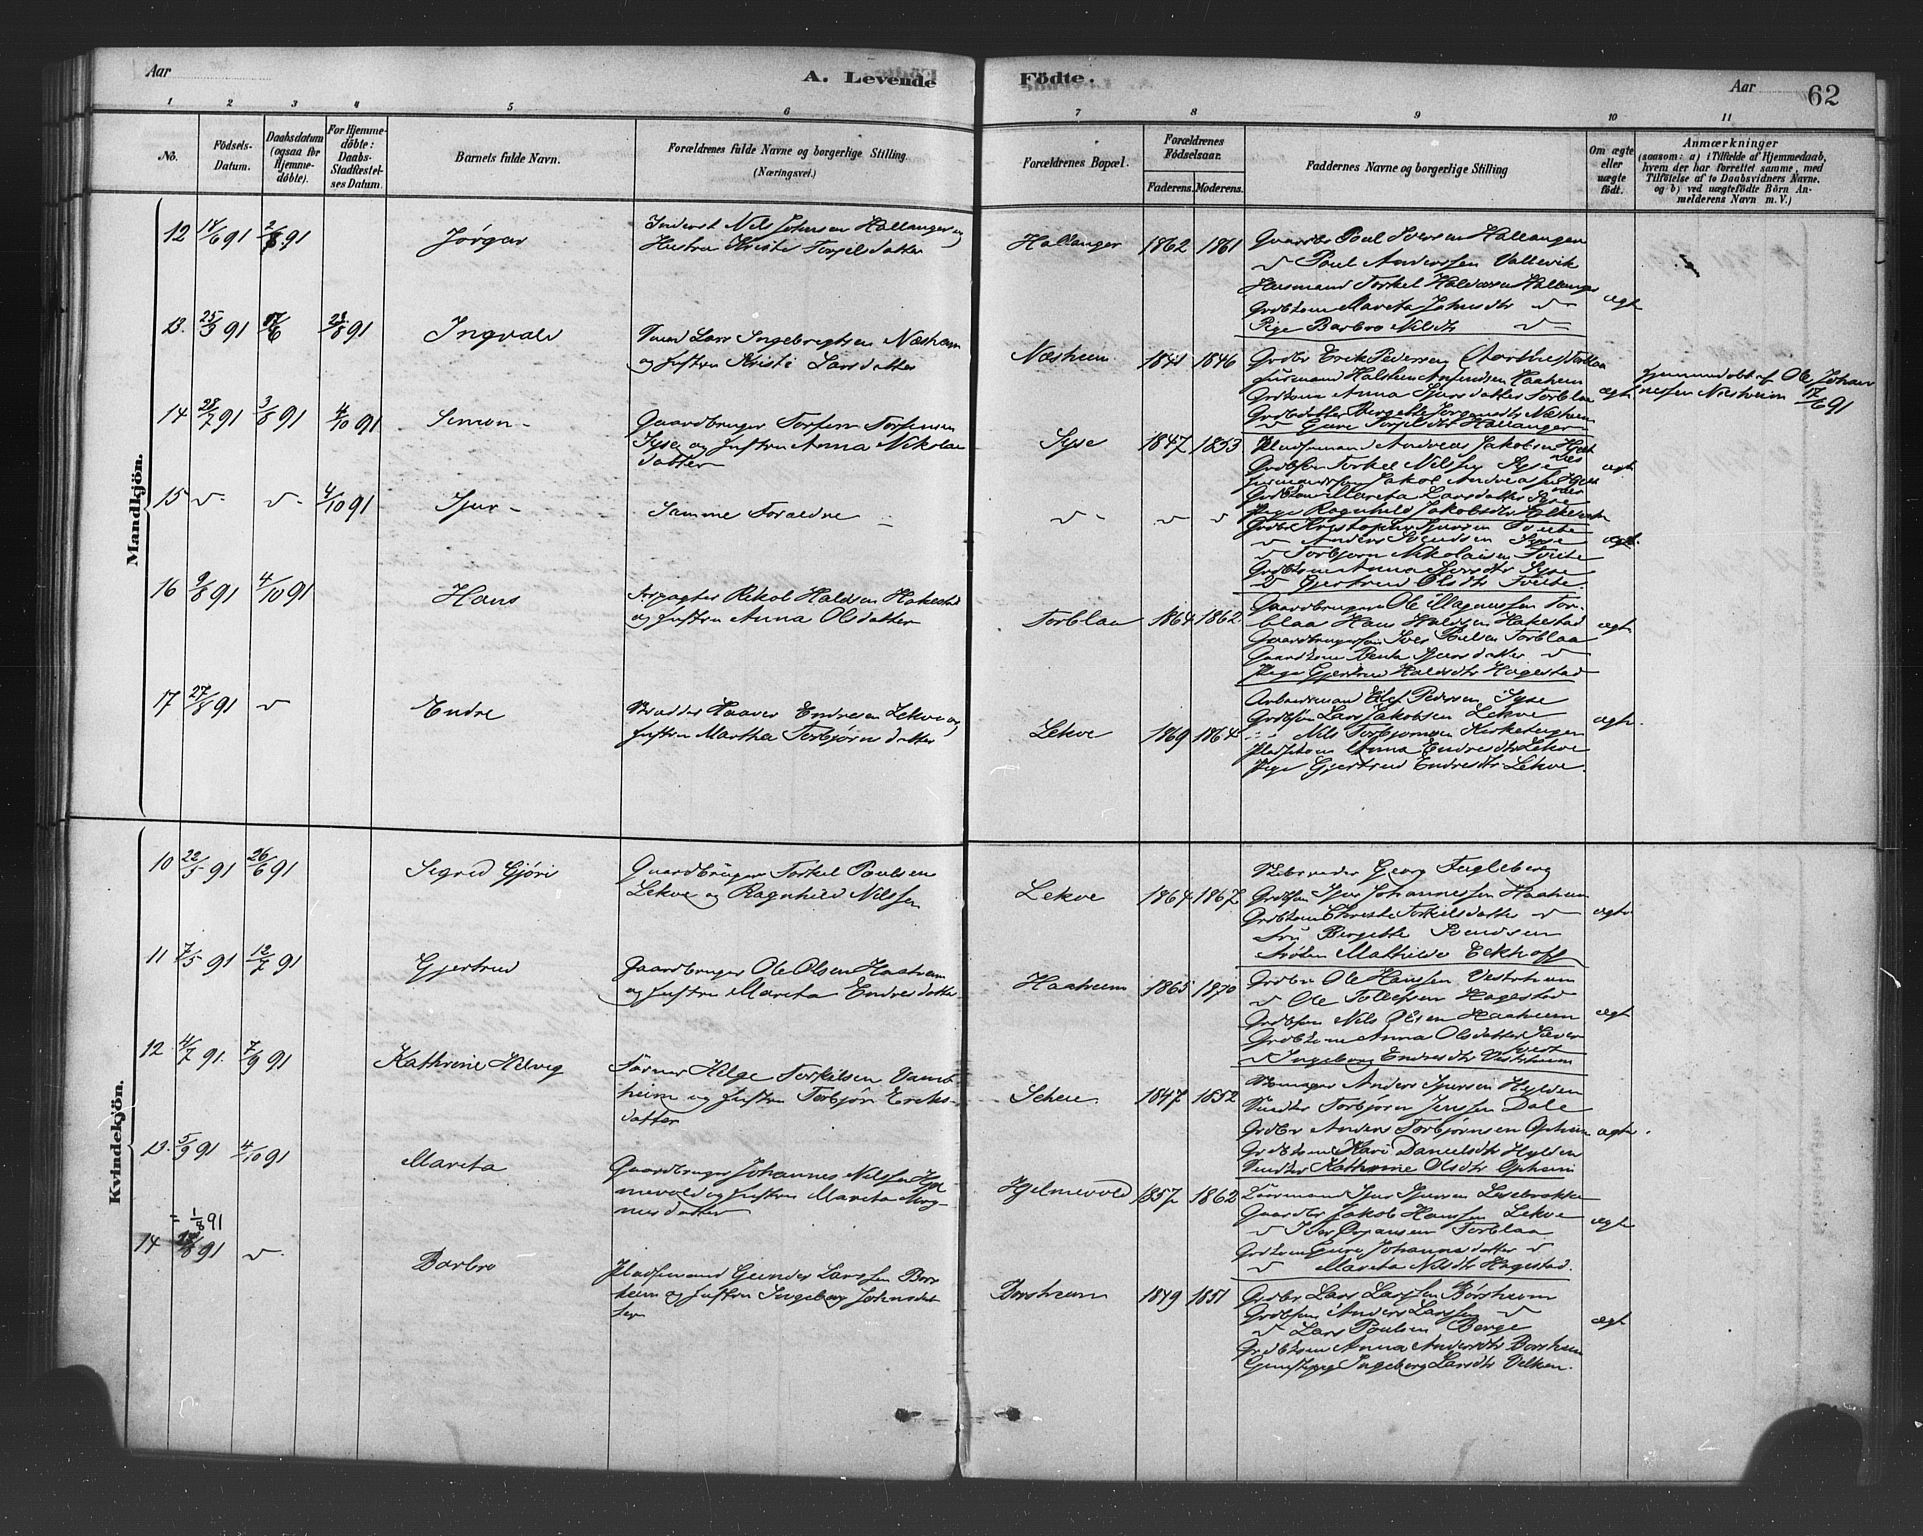 Aar
A. Levende
Födte.
Aar
62
1 2 3 4 5 6 7 8 9 10 11
No.
Födsels-
Datum.
Daabsdatum
(ogsaa for
Hjemme-
döbte).
For Hjemme-
döbte:
Daabs-
Stadfæstel-
ses Datum.
Barnets fulde Navn.
Forældrenes fulde Navne og borgerlige Stilling
(Næringsvei.)
Forældrenes Bopæl.
Forældrenes
Födselsaar.
Faderens. Moderens.
Faddernes Navne og borgerlige Stilling
Om ægte
eller
uægte
födt.
Anmærkninger
(saasom: a) i Tilfælde af Hjemmedaab,
hvem der har forrettet samme, med
Tilföielse af to Daabsvidners Navne.
og b) ved uægtefödte Börn An-
melderens Navn m. V.)
Mandkjön.
12 14/6 91 2/8 91
Jørgar
Inderst Nils Johnsen Hallanger og
Hustru Kristi Torfelsdatter
Hallanger 1862 1861
Gaardbr Poul Iversen Hallanger
v Poul Anderssen Vallevik
Husmand Torkel Haldorsen Hallanger
Grdbkone Mareta Johnsdtr v
Pige Barbro Nilsdtr v
ægt
13. 25/5 91 17/6 23/8 91
Ingvald
Lars Ingebregtsen Næsheim
og Hustru Kristi Larsdatter
Næsheim 1841 1846
Grdbr Erik Pedersen Torblaa
Halsten Haaheim
Grdkone Anna Sjursdatter Torblaa
Grdbdatter Bergette Jørgensdtr Næsheim
v Gure Torfelsdtr Hallanger
ægt
Hjemmedøbt af Ole Johan
nessen Næsheim 17/6 91
14 28/7 91 3/8 91 4/10 91
Simon -
Gaardbruger Torfinn Torfinsen
Syse og Hustru Anna Nikolai
datter
Syse 1847 1853
Pladsemand Andreas Jakobsen
Grdbsøn Torkel Nilssen Syse
Jakob Andreassen
Grdbkone Mareta Larsdatter Syse
Pige Ragnhild Jakobsdtr
ægt
15 v v 4/10 91
Sjur -
Samme Forældre
v v v
Grdbr Kristopher Sjursen Tveite
v Anders Svendsen Syse
v Torbjørn Nikolaisen Tveite
Grdbkone Anna Syse
v Gjertrud Olsdtr Tveite.
ægt
16 9/8 91 4/10 91
Hans
Forpagter Rikol Haldsen Hakestad
og Hustru Anna Olsdatter
Torblaa 1864 1862
Gaardbruger Ole Magnussen Tor-
blaa Hans Haldsen Hakestad
Gaardbrugersøn Iver Poulsen Torblaa
Gaardkone Benta Sjursdatter v
Pige Gjertrud Haldsdtr Hagestad
ægt
17 27/8 91 v
Endre
Haaver Endresen Lekve og
Hustru Martha Torbjørnsdatter
Lekve 1869 1864
Arbeidsmand Elef Pedersen Syse
Grdbsøn Lars Jakobsen Lekve
Nils Torbjørnsen Kirketeigen
Pladskone Anna Endresdtr Lekve
Pige Gjertrud Endresdtr Lekve.
ægt
Kvindekjön.
10 22/5 91 26/6 91
Sigrid Gjøri
Gaardbruger Torkel Poulsen
Lekve og Ragnhild Nilssen
Lekve 1864 1867
Georg Fugleberg
Grdbsøn Sjur Johannessen Haaheim
Grdbkone Christi Torkelsdatter v
Fru Bergette Svendsen
Frøken Mathilde Eckhoff
ægt
11 7/5 91 12/7 91
Gjertrud
Gaardbruger Ole Olsen Haaheim
og Hustru Mareta Endresdatter
Haaheim 1865 1870
Grdbr Ole Hanssen Vestrheim
v Ole Tollefsen Hagestad
Grdbsøn Nils Olsen Haaheim
Grdbkone Anna Olsdatter
v Ingeborg Endresdtr Vestrheim
ægt
12. 4/7 91. 7/9 91
Kathrine Helvig
Helge Torkelsen Vamb-
heim og Hustru Torbjør Eriks-
datter
Scheie 1847 1852
Anders Sjursen Hylden
Torbjørn Jenssen Dale
Grdbr Anders Torbjørnsen Opheim
Grdbkone Kari Danielsdtr Hylden
Kathrine Olsdtr Opheim
ægt.
13. 5/9 91 4/10 91
Mareta
Gaardbruger Johannes Nilssen Hjel
mevold og Hustru Mareta Mag-
nesdatter
Hjelmevold 1857 1862
Sjur Sjursen
Gaardbr Jakob Hanssen Lekve
v Torblaa
Grdkone Gure Johannesdatter v
v Mareta Nilsdtr Hagestad.
ægt
= 1/8 91
14 /8 91 v
Barbro
Pladsemand Gunder Larssen Bors
heim og Hustru Ingeborg Johnsdat
ter
Borsheim 1849 1851
Grdbr Lars Larssen Børsheim
Grdbsøn Anders Larssen v
v Lars Poulsen Berge
Grdbkone Anna Andersdtr Borsheim
Ingeborg Larsdtr Velken.
ægt